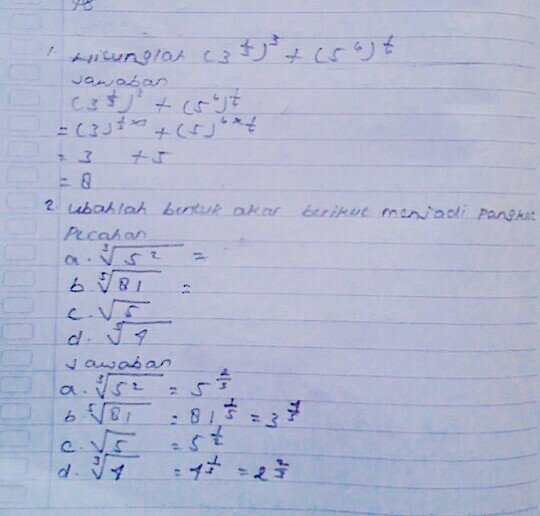 1. Hitunglah (3^{1/3})^3 + (5^6)^{1/6}
Jawaban
(3^{1/3})^3 + (5^6)^{1/6}
= (3)^{1/3 × 3} + (5)^{6 × 1/6}
= 3 + 5
= 8
2. Ubahlah bentuk akar berikut menjadi pangkat
pecahan
a. ∛5² =
b. ⁵√81 =
c. √5
d. ∛4
Jawaban
a. ∛5² = 5^{2/3}
b. ⁵√81 = 81^{1/5} = 3^{4/5}
c. √5 = 5^{1/2}
d. ∛4 = 4^{1/3} = 2^{2/3}